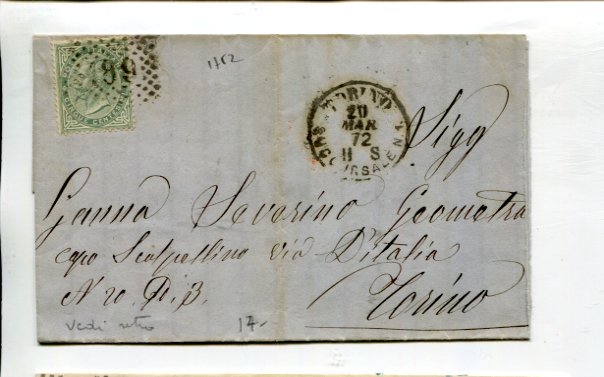 CINQUE CENTESIMI
1752
TORINO
20
MAR
72
11 S
SUCCURSALE N.1
Sigg
Ganna Severino Geometra
capo Scalpellino via D'Italia
N 20. P. 3.
Torino
Vedi retro
17-